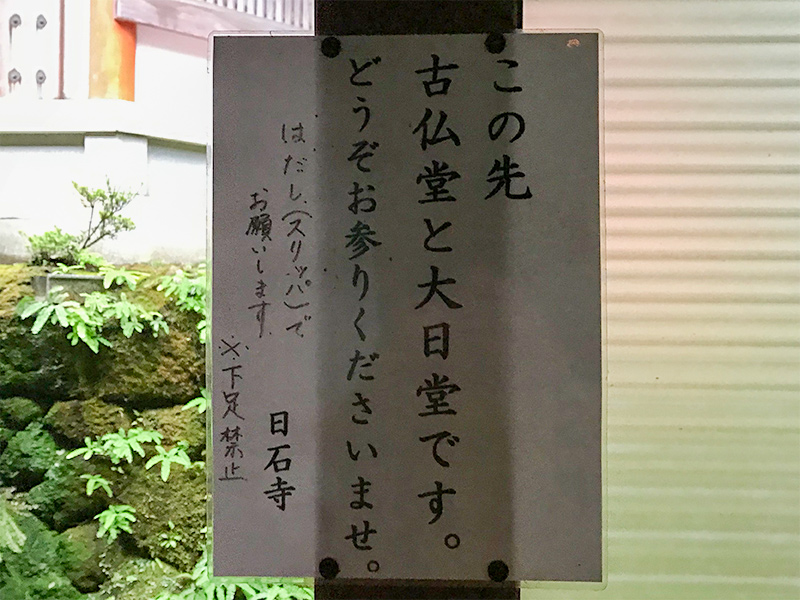 この先
古仏堂と大日堂です。
どうぞお参りくださいませ。
はだし(スリッパ)で
お願いします
日石寺
※下足禁止